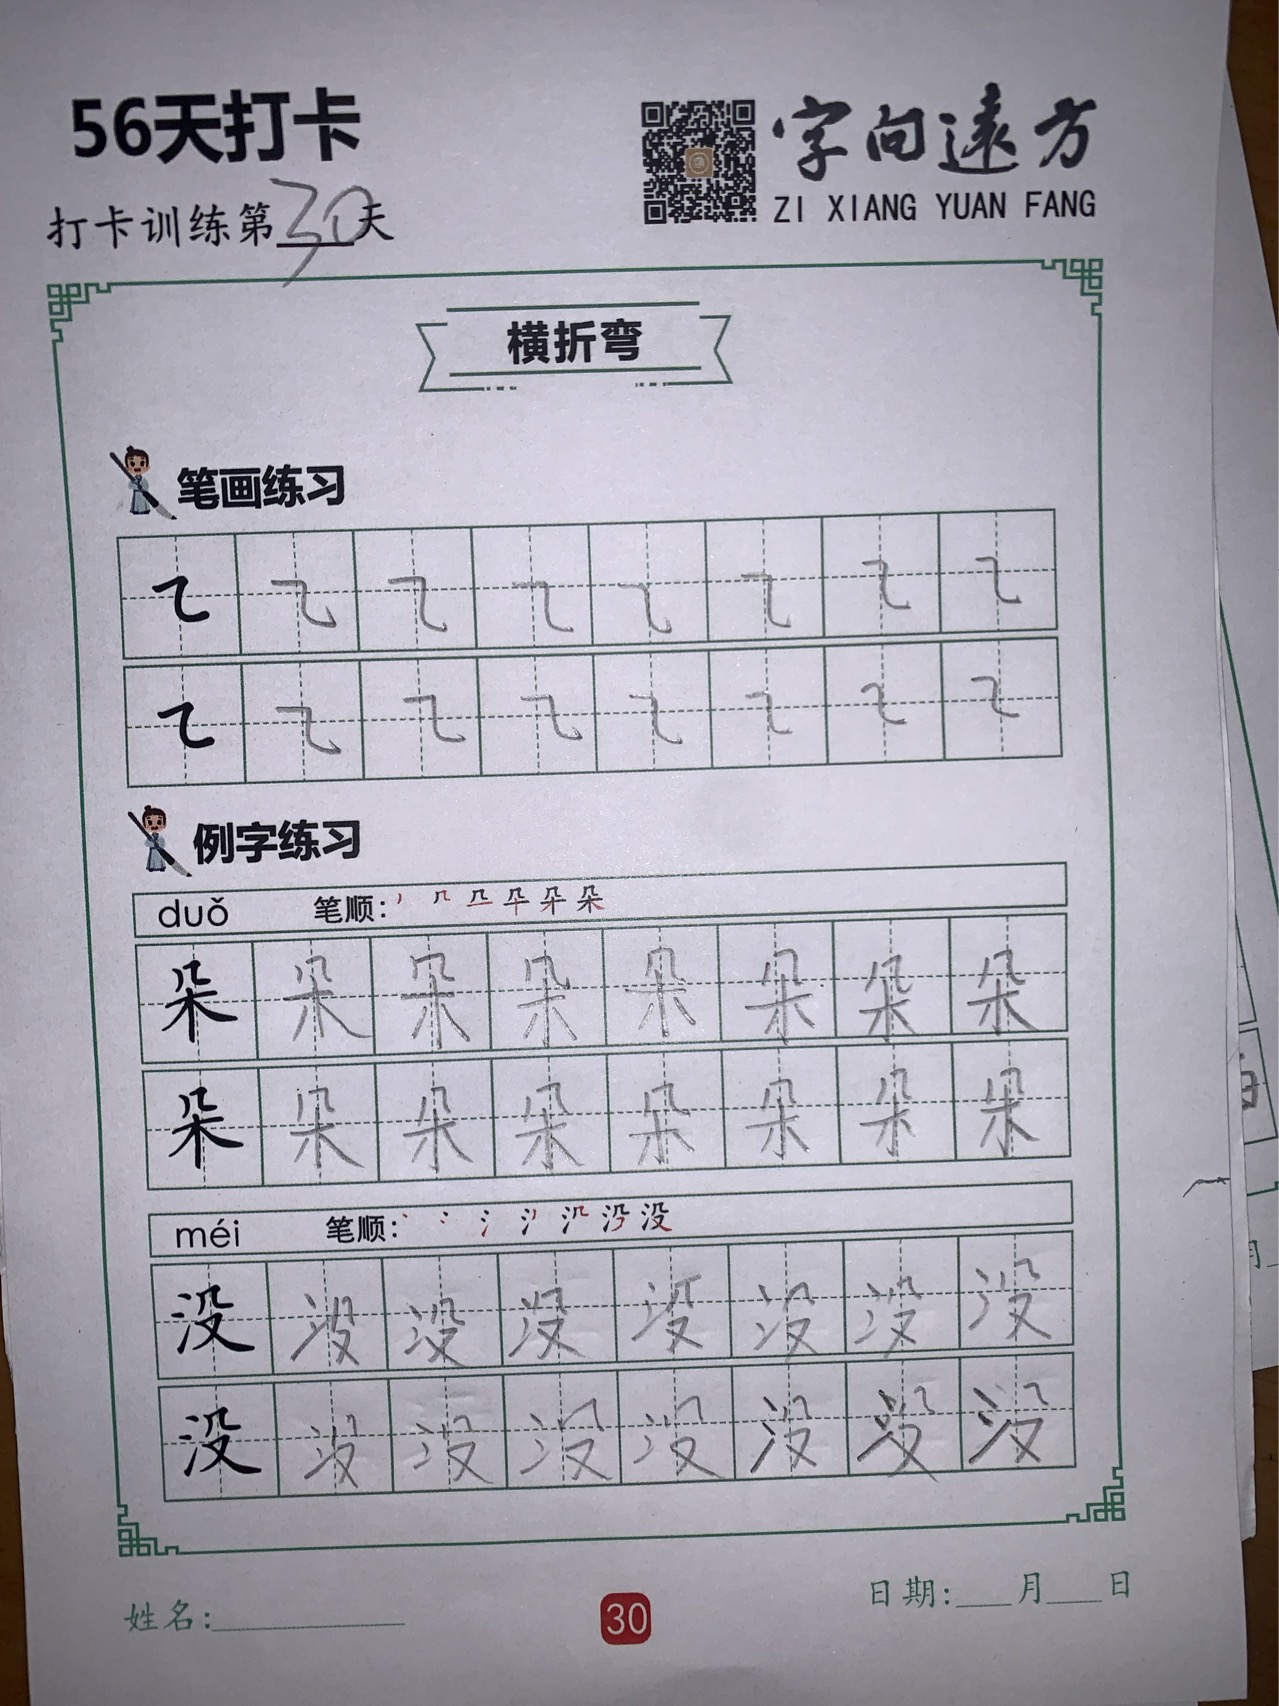 56天打卡
字向遠方
ZI XIANG YUAN FANG
打卡训练第30天
横折弯
笔画练习
例字练习
duǒ 笔顺:
朵 朵 朵 朵 朵 朵 朵 朵
朵 朵 朵 朵 朵 朵 朵 朵
méi 笔顺: 没
没 没 没 没 没 没 没 没
没 没 没 没 没 没 没 没
姓名: 日期: 月 日
30